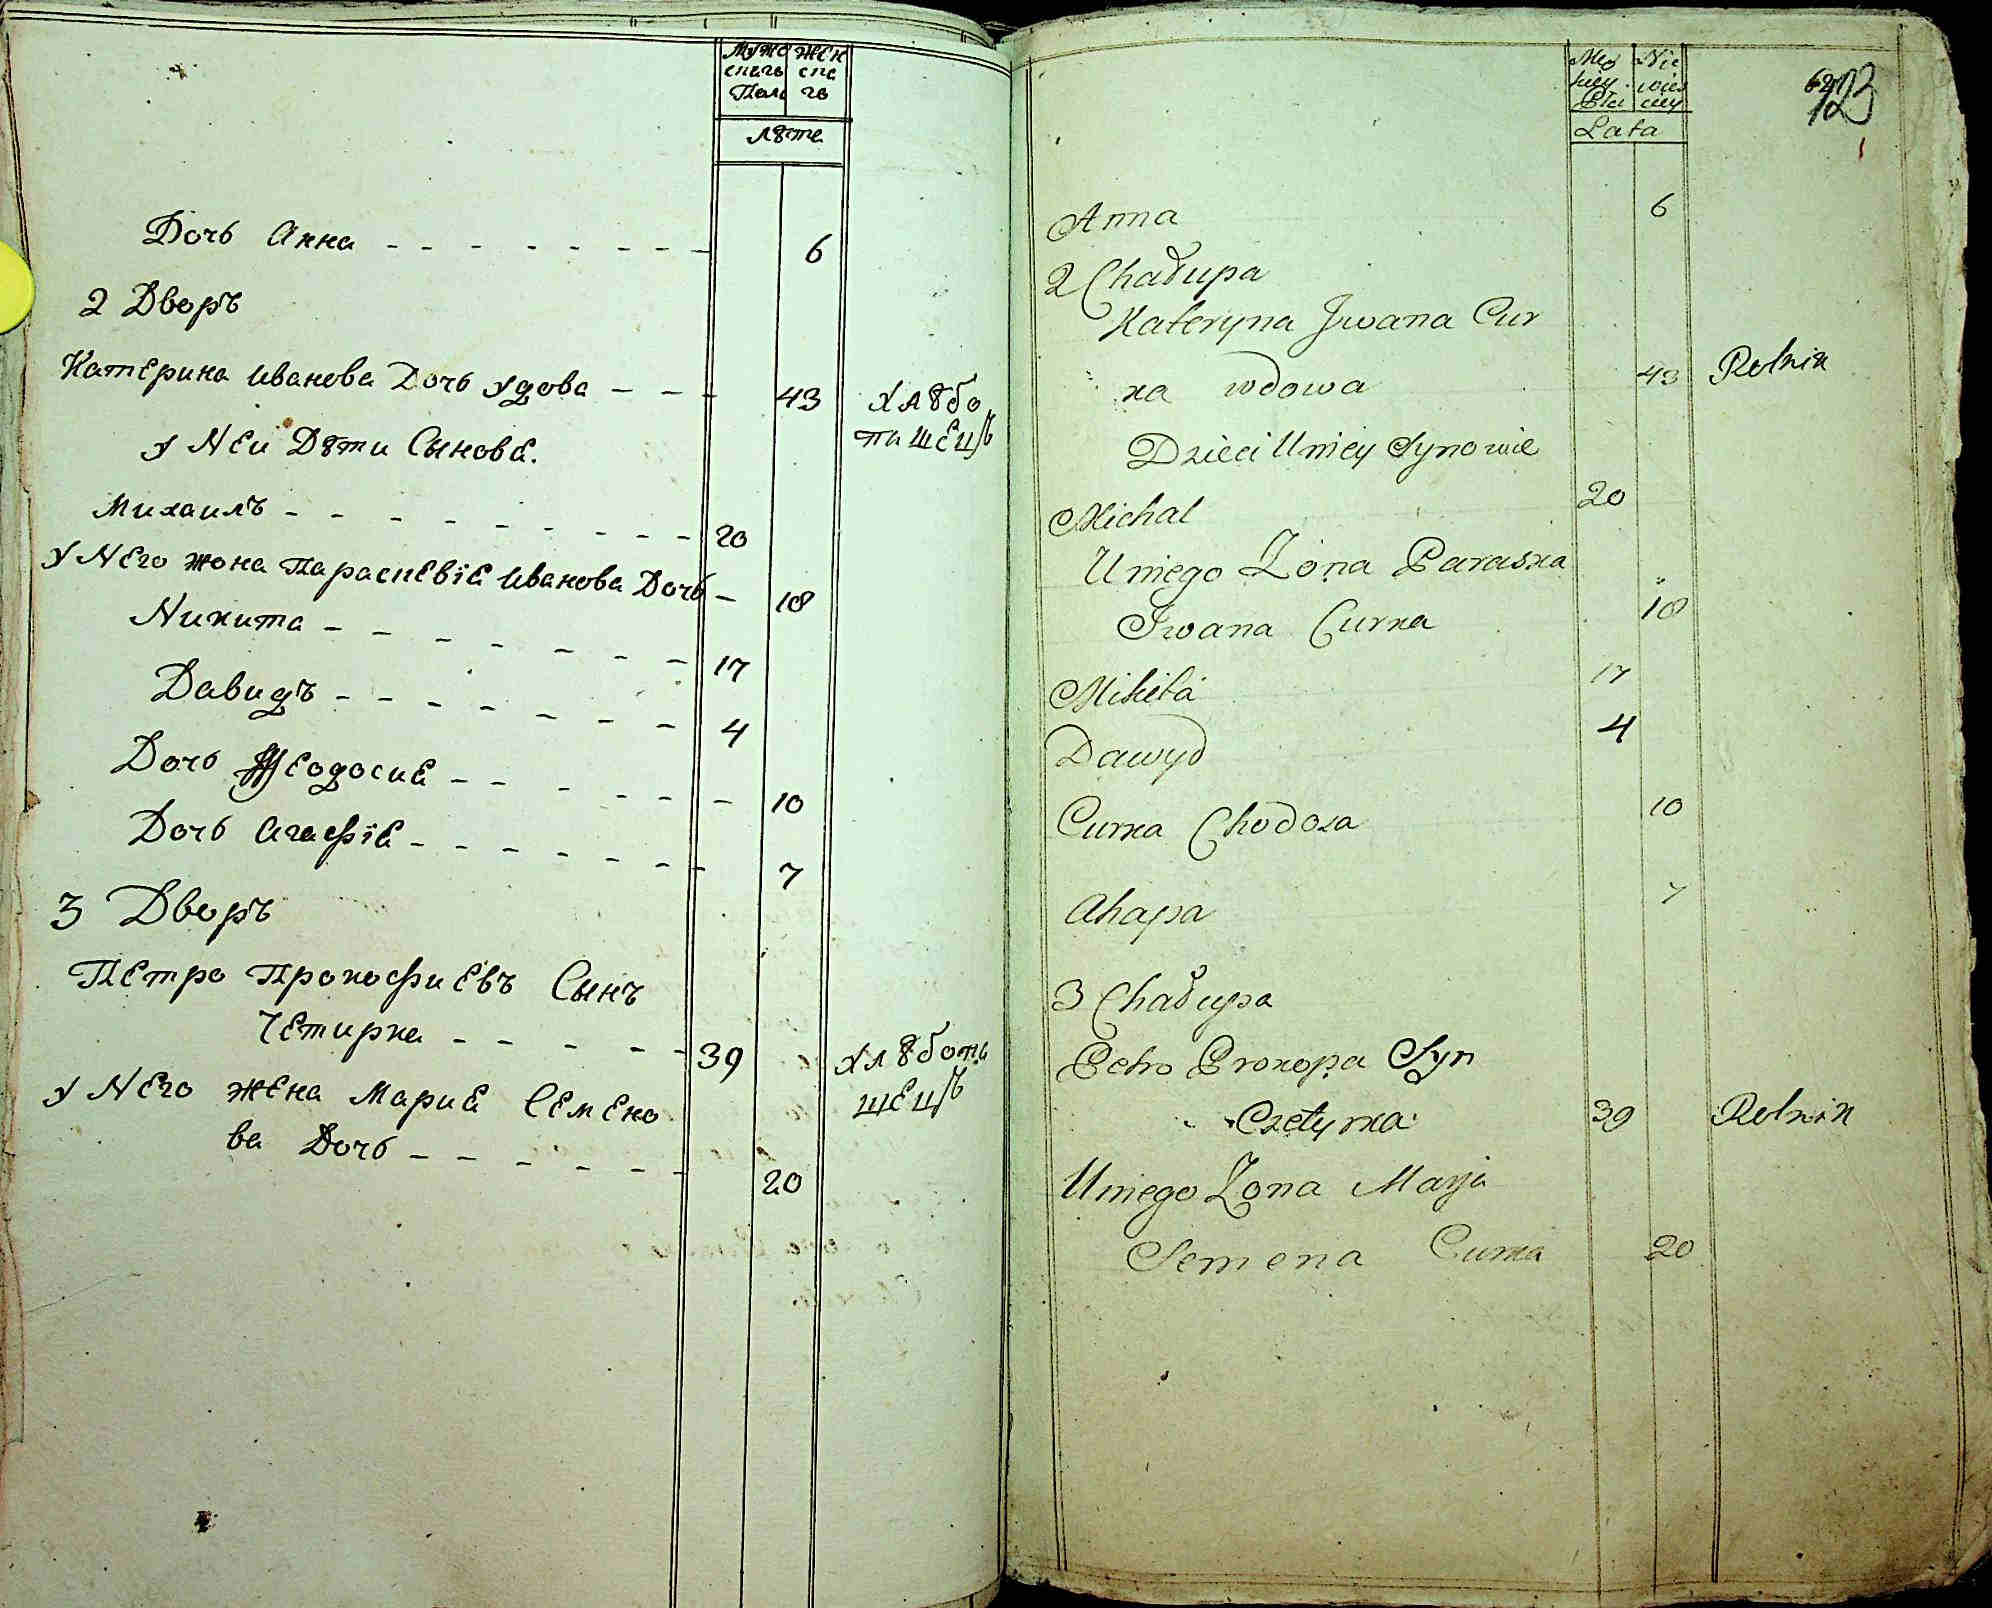 Мужескаго Полу
Женскаго
лѣта
Дочь Анна - - - - - - - - 6
2 Дворъ
Катерина Иванова Дочь удова - - - 43 Хлѣбо
пашецъ
у Ней Дѣти Сыновѣ.
Михаилъ - - - - - - - - - 20
у Него жона Параскевія Иванова Дочь - 18
Никита - - - - - - - 17
Давидъ - - - - - - - 4
Дочь Феодосиѣ - - - - - - 10
Дочь Агафіѣ - - - - - - - 7
3 Дворъ
Петро Прокофиевъ Сынъ
Четирка - - - - - 39 Хлѣбопа
шецъ
у Него жена Мариѣ Семено
ва Дочь - - - - - - 20
Lata
123
Anna 6
2 Chałupa
Kateryna Jwana Cur
ka wdowa 43 Rolnik
Dzieci Uniey Synowie
Michal 20
Uniego Zona Paraska
Jwana Curka 18
Mikita 17
Dawyd 4
Curka Chodosa 10
Ahapa 7
3 Chałupa
Petro Prokopa Syn
Czetyrka 39 Rolnik
Uniego Zona Marja
Semena Curka 20